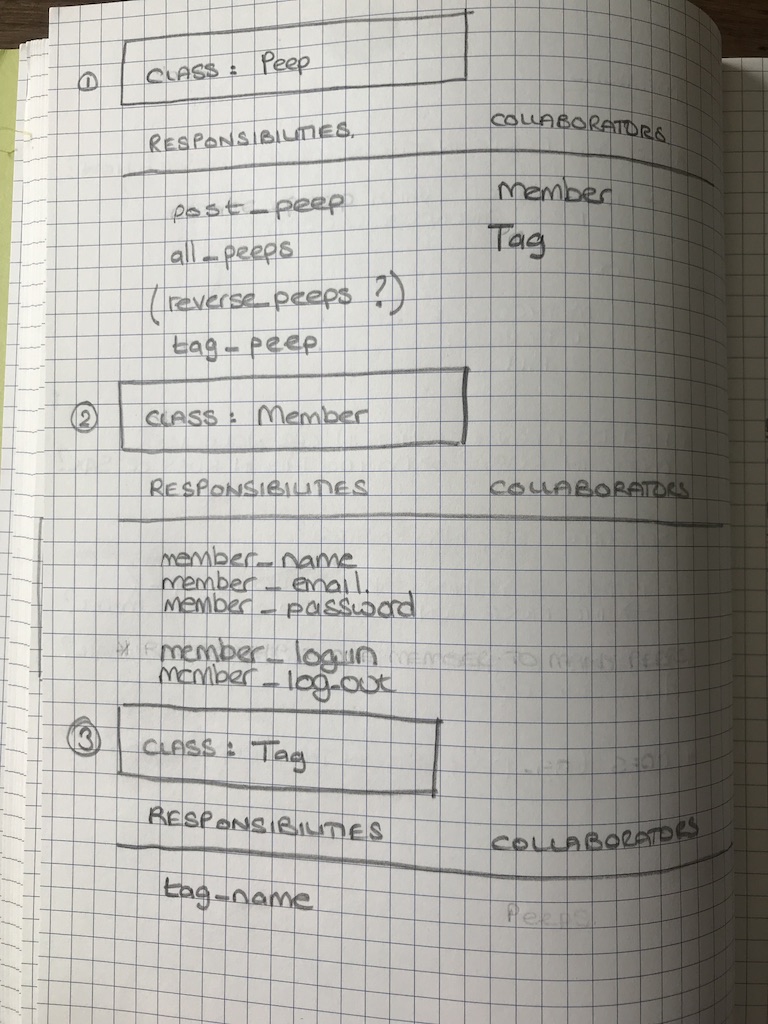 ① CLASS : Peep
RESPONSIBILITIES. COLLABORATORS
post_peep Member
all_peeps Tag
(reverse_peeps ?)
tag_peep
② CLASS : Member
RESPONSIBILITIES COLLABORATORS
member_name
member_email.
member_password
* member_log in
member_log_out
③ CLASS : Tag
RESPONSIBILITIES COLLABORATORS
tag_name
Peeps